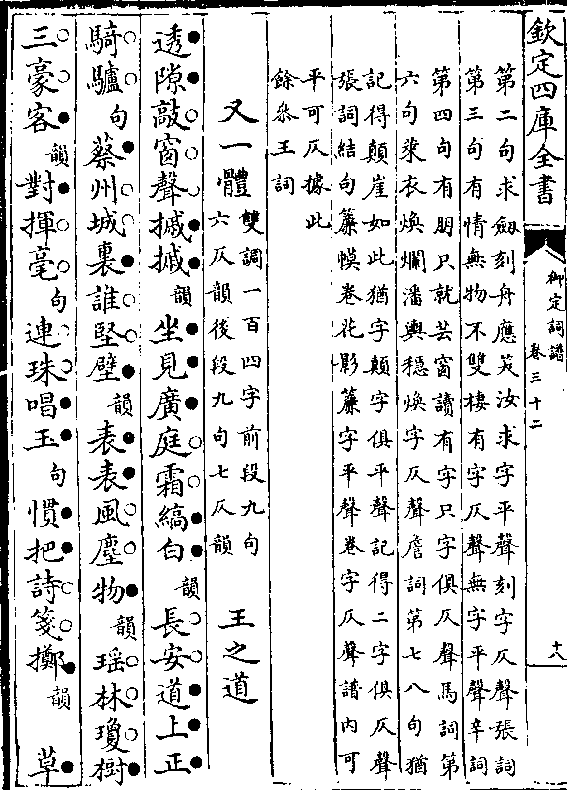 欽定四庫全書
御定詞譜
卷三十二
十八
第二句求劔刻舟應笑汝求字平聲刻字仄聲張詞
第三句有情無物不雙棲有字仄聲無字平聲辛詞
第四句有朋只就芸窗讀有字只字俱仄聲馬詞第
六句葉衣煥爛潘輿穩煥字仄聲詹詞第七八句猶
記得顛崖如此猶字顛字俱平聲記得二字俱仄聲
張詞結句簾幙卷花影簾字平聲卷字仄聲譜內可
平可仄據此
餘叅王詞
又一體
雙調一百四字前段九句
六仄韻後段九句七仄韻
王之道
透隙敲窗聲摵摵韻坐見廣庭霜縞白韻長安道上正
騎驢句蔡州城裏誰堅壁韻表表風塵物韻瑶林瓊樹
三豪客韻對揮毫句連珠唱玉句慣把詩箋擲韻草